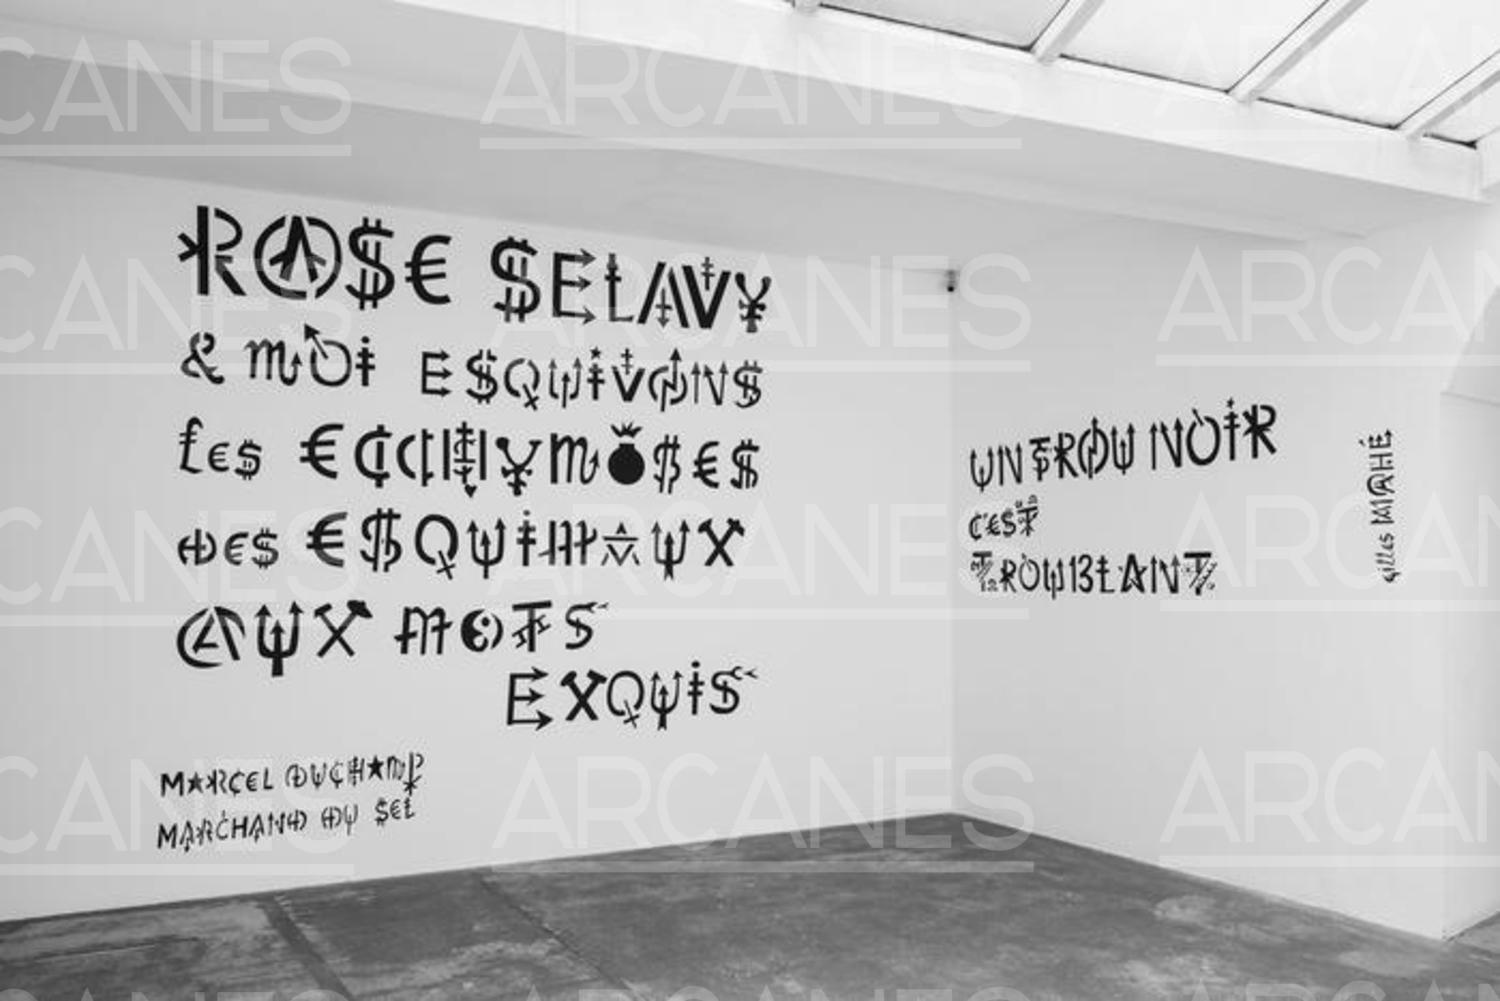 ROSE SELAVY
& MOI ESQUIVONS
LES ECCHYMOSES
DES ESQUIMAUX
AUX MOTS
EXQUIS
MARCEL DUCHAMP
MARCHAND DU SEL
UN TROU NOIR
C'EST
TROUBLANT
Gilles MAHÉ
ARCANES